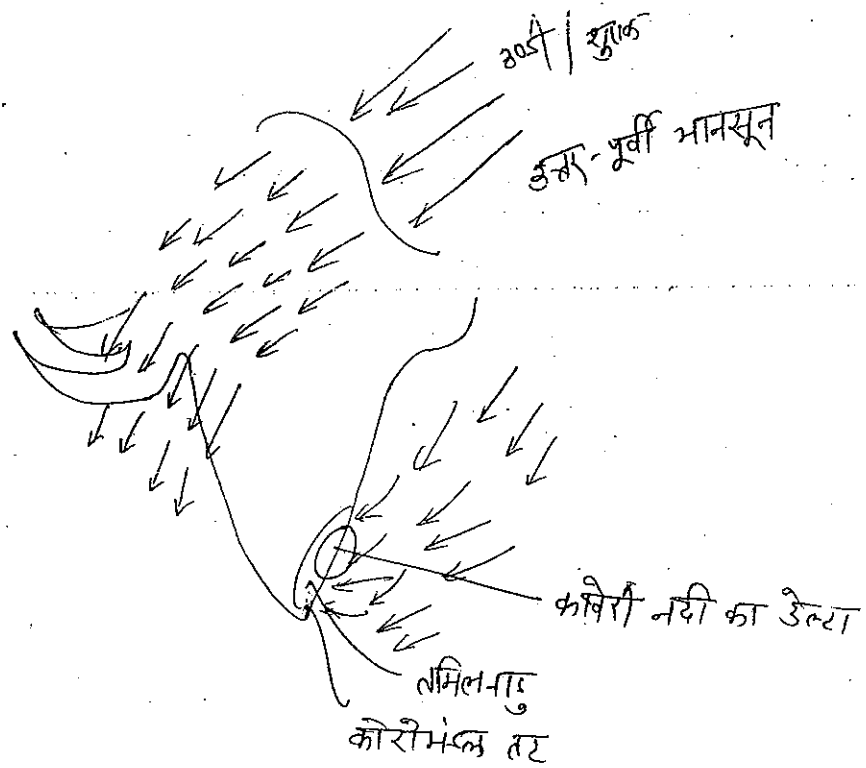 ठण्डी | शुष्क
उत्तर-पूर्वी मानसून
कावेरी नदी का डेल्टा
तमिलनाडु
कोरोमंडल तट